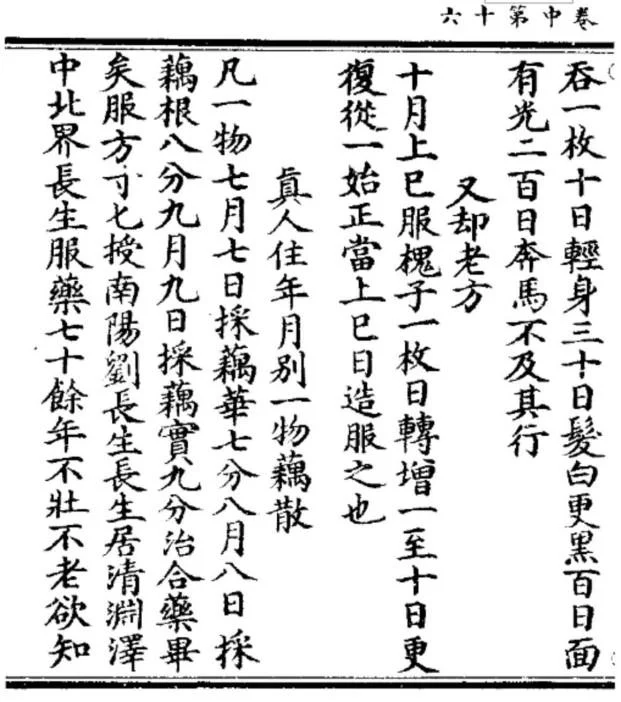 卷中第十六
吞一枚十日輕身三十日髮白更黑百日面
有光二百日奔馬不及其行
又却老方
十月上巳服槐子一枚日轉增一至十日更
復從一始正當上巳日造服之也
真人住年月別一物藕散
凡一物七月七日採藕華七分八月八日採
藕根八分九月九日採藕實九分治合藥畢
矣服方寸匕授南陽劉長生長生居清淵澤
中北界長生服藥七十餘年不壯不老欲知